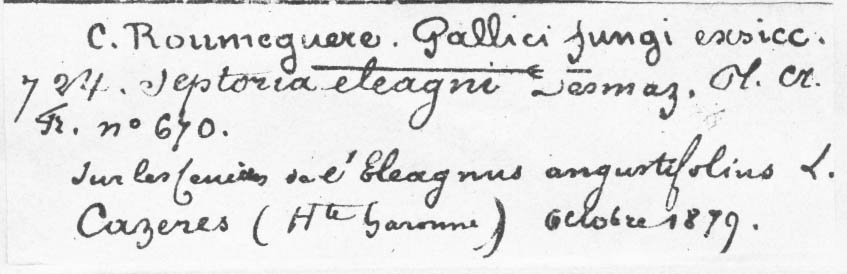 C. Roumeguere. Gallici fungi exsicc.
724. Septoria eleagni Desmaz. Pl. Cr.
Fr. nº 670.
Sur les feuilles de l'Eleagnus angustifolius L.
Cazeres (Hte Garonne) Octobre 1879.